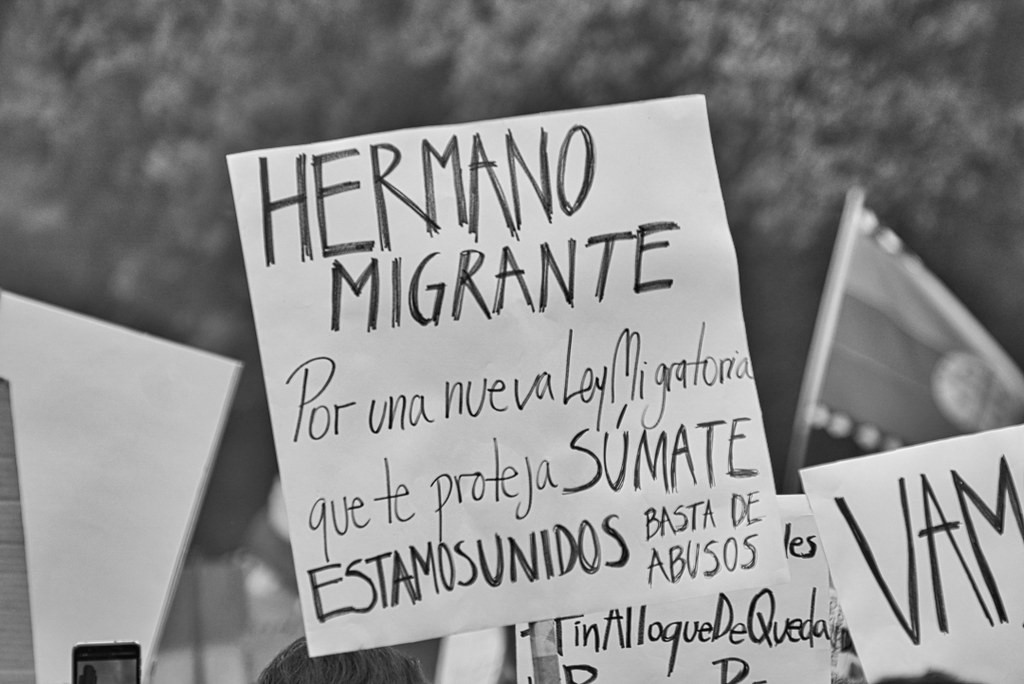 HERMANO
MIGRANTE
Por una nueva Ley Migratoria
que te proteja SÚMATE
ESTAMOS UNIDOS BASTA DE
ABUSOS
les
TinAlloqueDeQueda
VAM